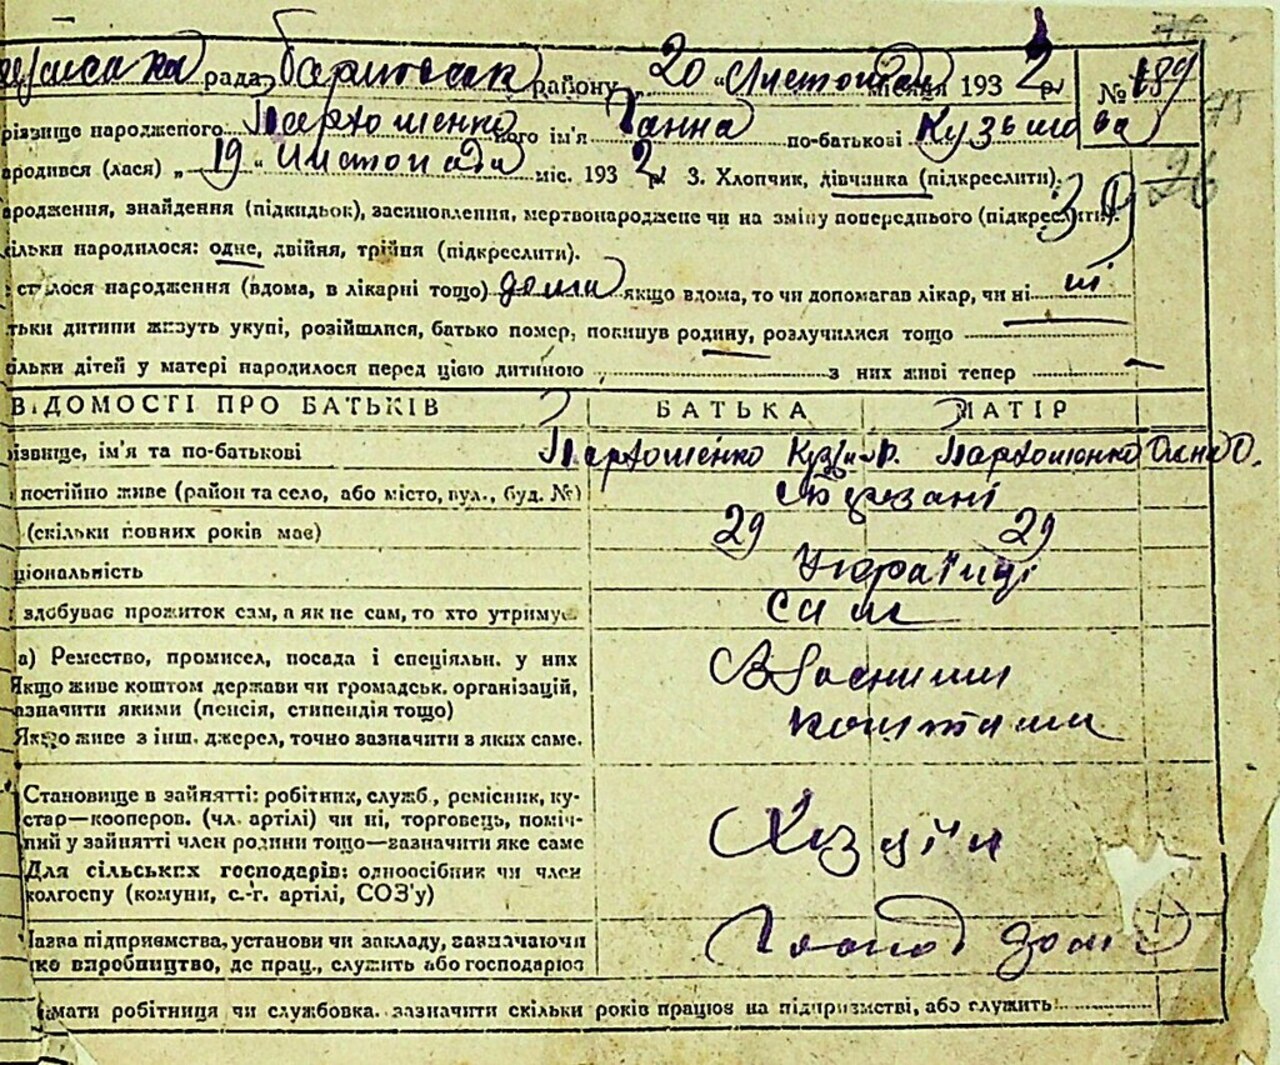 рада Баришівськ району „ 20 “ Листопада місяця 193 2 р № 189
різвище народженого Пархоменко ного ім'я Ганна по-батькові Кузьмо ва
ародився (лася) „ 19 “ Листопада міс. 193 2 р 3. Хлопчик, дівчинка (підкреслити).
ародження, знайдення (підкидьок), засиновлення, мертвонароджене чи на зміну попереднього (підкреслити).
кільки народилося: одне, двійня, трійня (підкреслити).
сталося народження (вдома, в лікарні тощо) дома якщо вдома, то чи допомагав лікар, чи ні ні
тьки дитини живуть укупі, розійшлися, батько помер, покинув родину, розлучилися тощо
ільки дітей у матері народилося перед цією дитиною з них живі тепер —
ВІДОМОСТІ ПРО БАТЬКІВ БАТЬКА МАТІР
різвище, ім'я та по-батькові Пархоменко Кузьма Пархоменко О.
постійно живе (район та село, або місто, вул., буд. №) Березані
(скільки повних років має) 29 29
ціональність Українці
здобуває прожиток сам, а як не сам, то хто утримує сам
а) Ремество, промисел, посада і спеціяльн. у них Власними
Якщо живе коштом держави чи громадськ. організацій,
азначити якими (пенсія, стипендія тощо) коштами
Якщо живе з інш. джерел, точно зазначити з яких саме.
Становище в зайнятті: робітник, служб., ремісник, ку-
стар—кооперов. (чл. артілі) чи ні, торговець, поміч-
ний у зайнятті член родини тощо—зазначити яке саме Хазяїн
Для сільських господарів: одноосібник чи член
колгоспу (комуни, с.-г. артілі, СОЗ'у)
Назва підприємства, установи чи закладу, зазначаючи
яке виробництво, де прац., служить або господарює Господ дома
мати робітниця чи службовка. зазначити скільки років працює на підприємстві, або служить